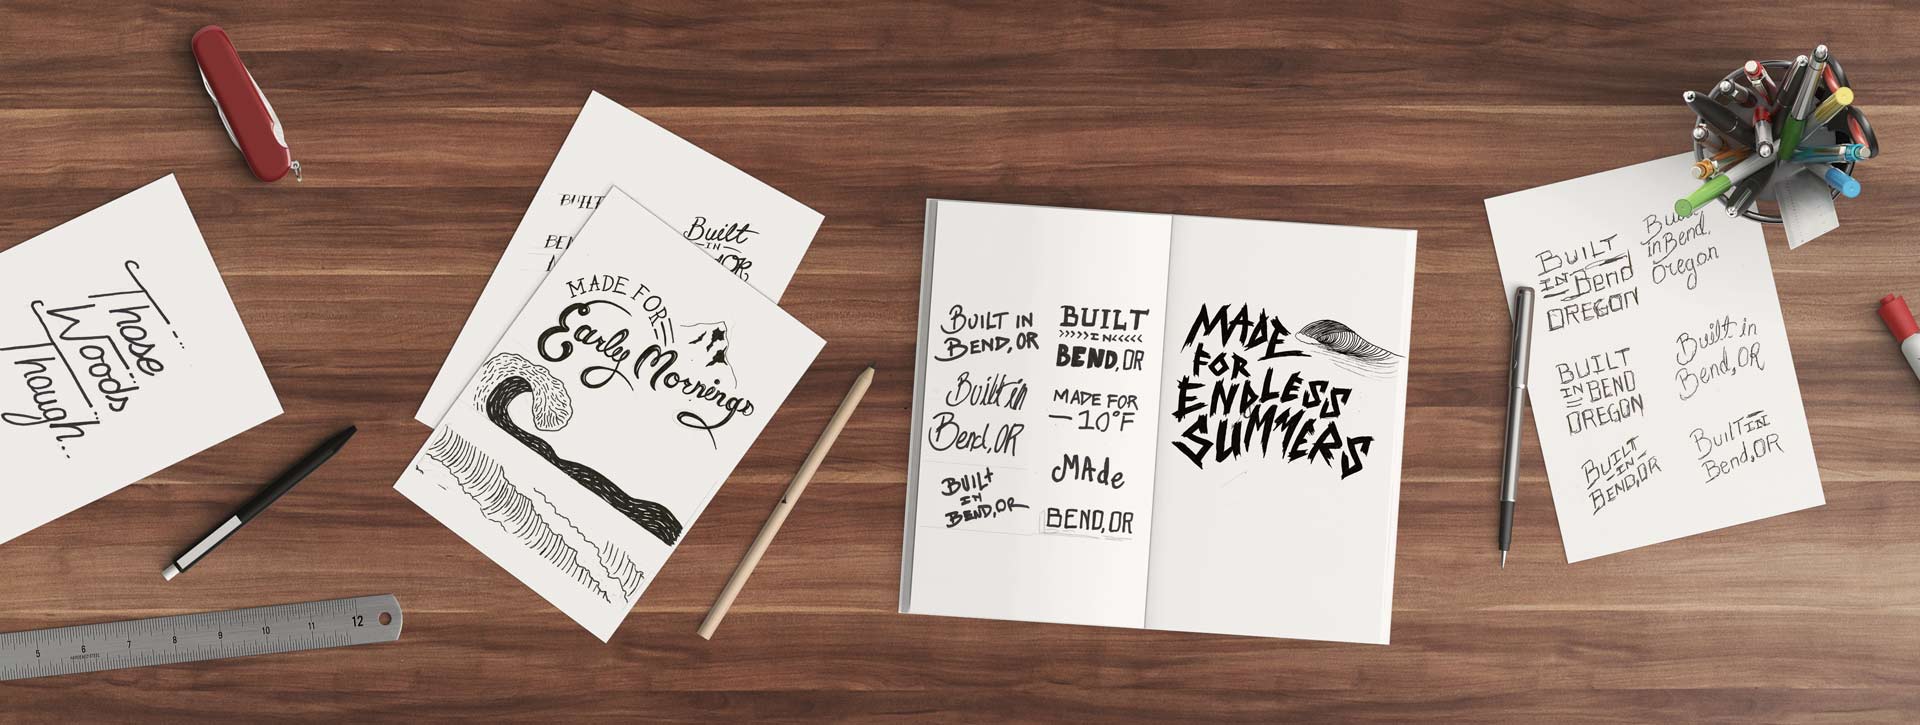 Those
Woods
Though...
5 6 7 8 9 10 11 12
BUILT
Built
IN
MADE FOR
Early Mornings
BUILT IN
BEND, OR
Built in
Bend, OR
BUILt
IN
BEND, OR
BUILT
>>>>>IN<<<<<
BEND, OR
MADE FOR
-10°F
MAde
BEND, OR
MADE
FOR
ENDLESS
SUMMERS
BUILT
IN Bend
OREGON
Built
in Bend,
Oregon
BUILT
IN BEND
OREGON
Built in
Bend, OR
BUILT
-IN-
BEND, OR
BUILT IN
Bend, OR